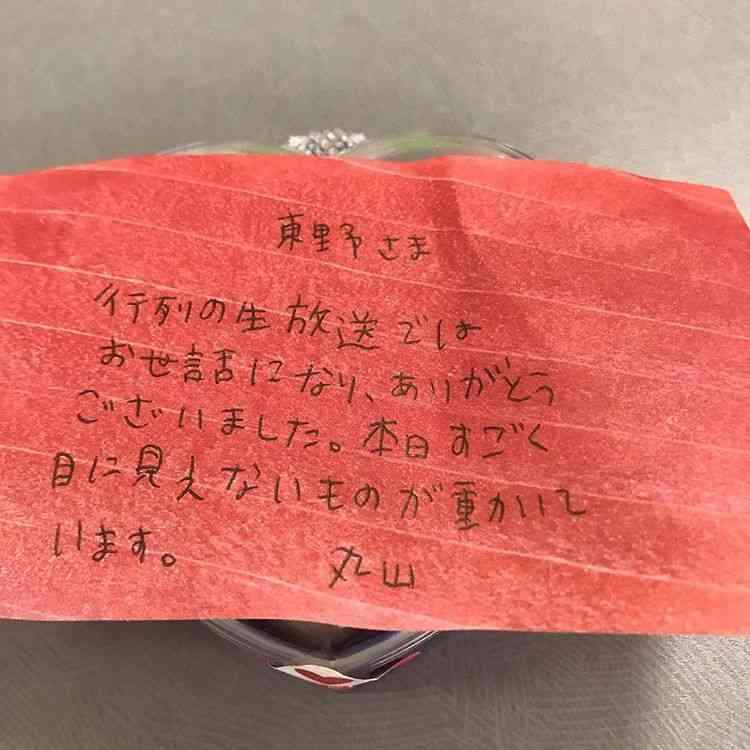 東野さま
行列の生放送では
お世話になり、ありがとう
ございました。本日すごく
目に見えないものが重かいて
います。
丸山